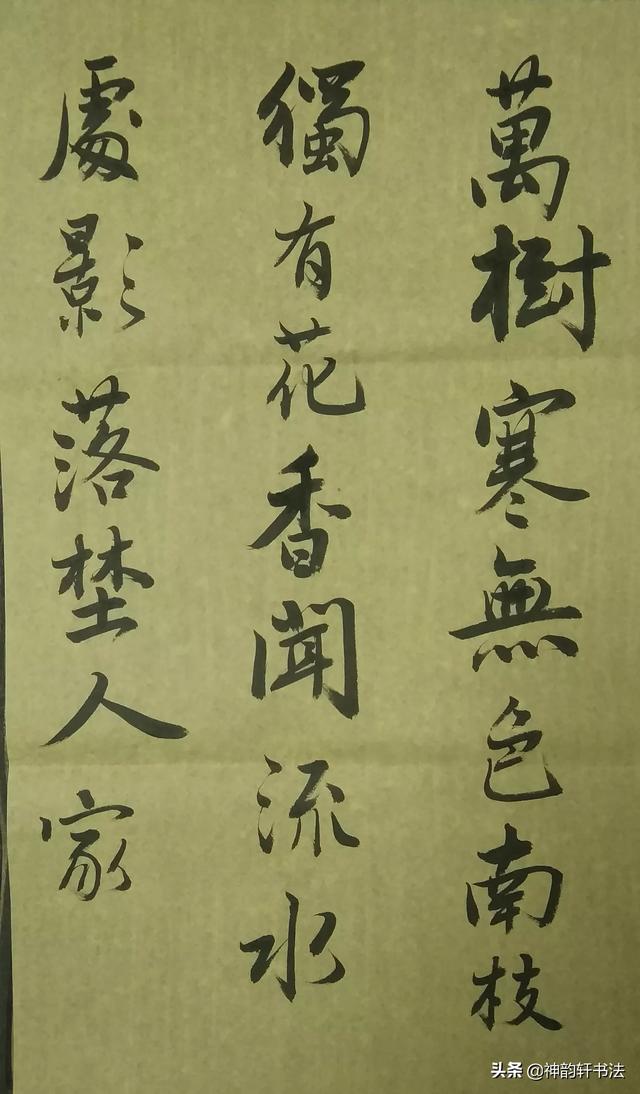 萬樹寒無色南枝
獨有花香聞流水
處影落埜人家
头条 @神韵轩书法